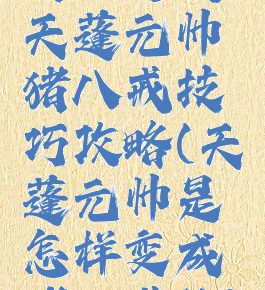 天蓬元帅
猪八戒技
巧攻略(天
蓬元帅是
怎样变成